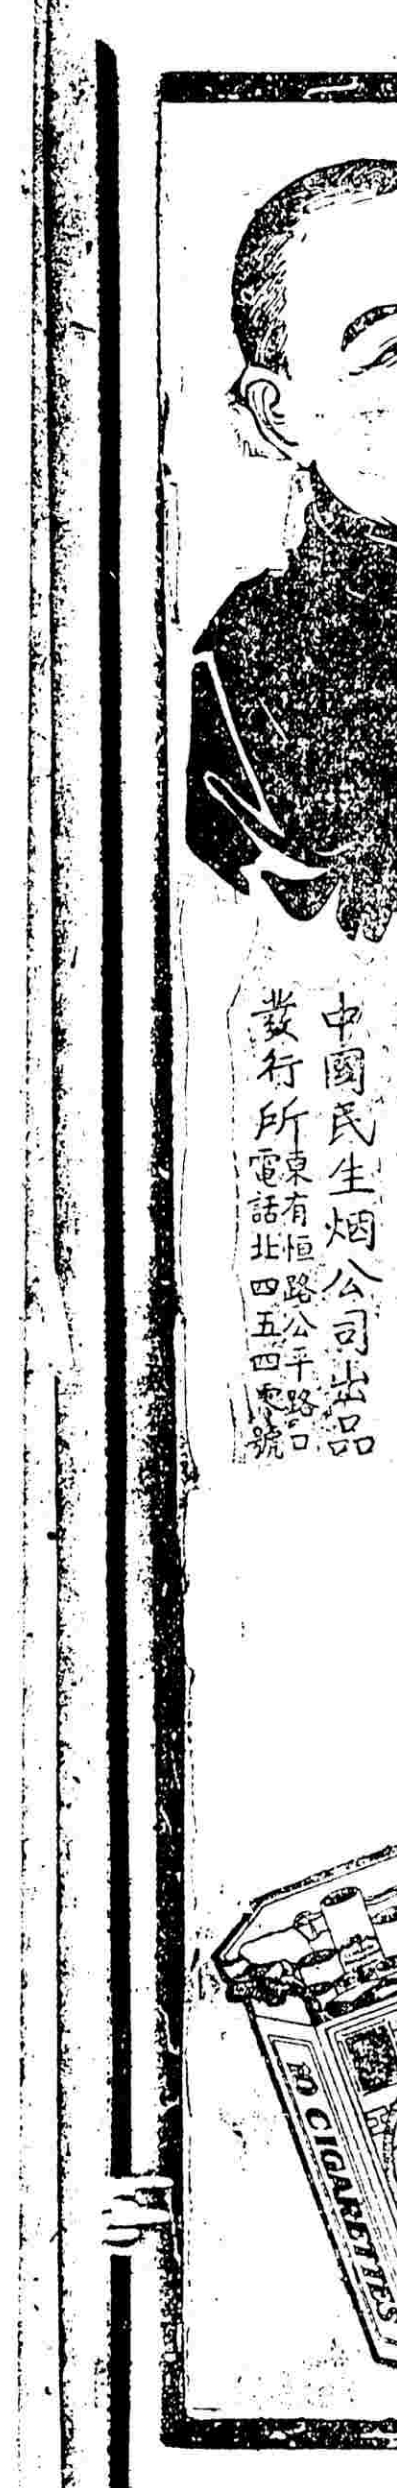 中國民生烟公司出品
發行所
東有恒路公平路口
電話北四五四零號
10 CIGARETTES